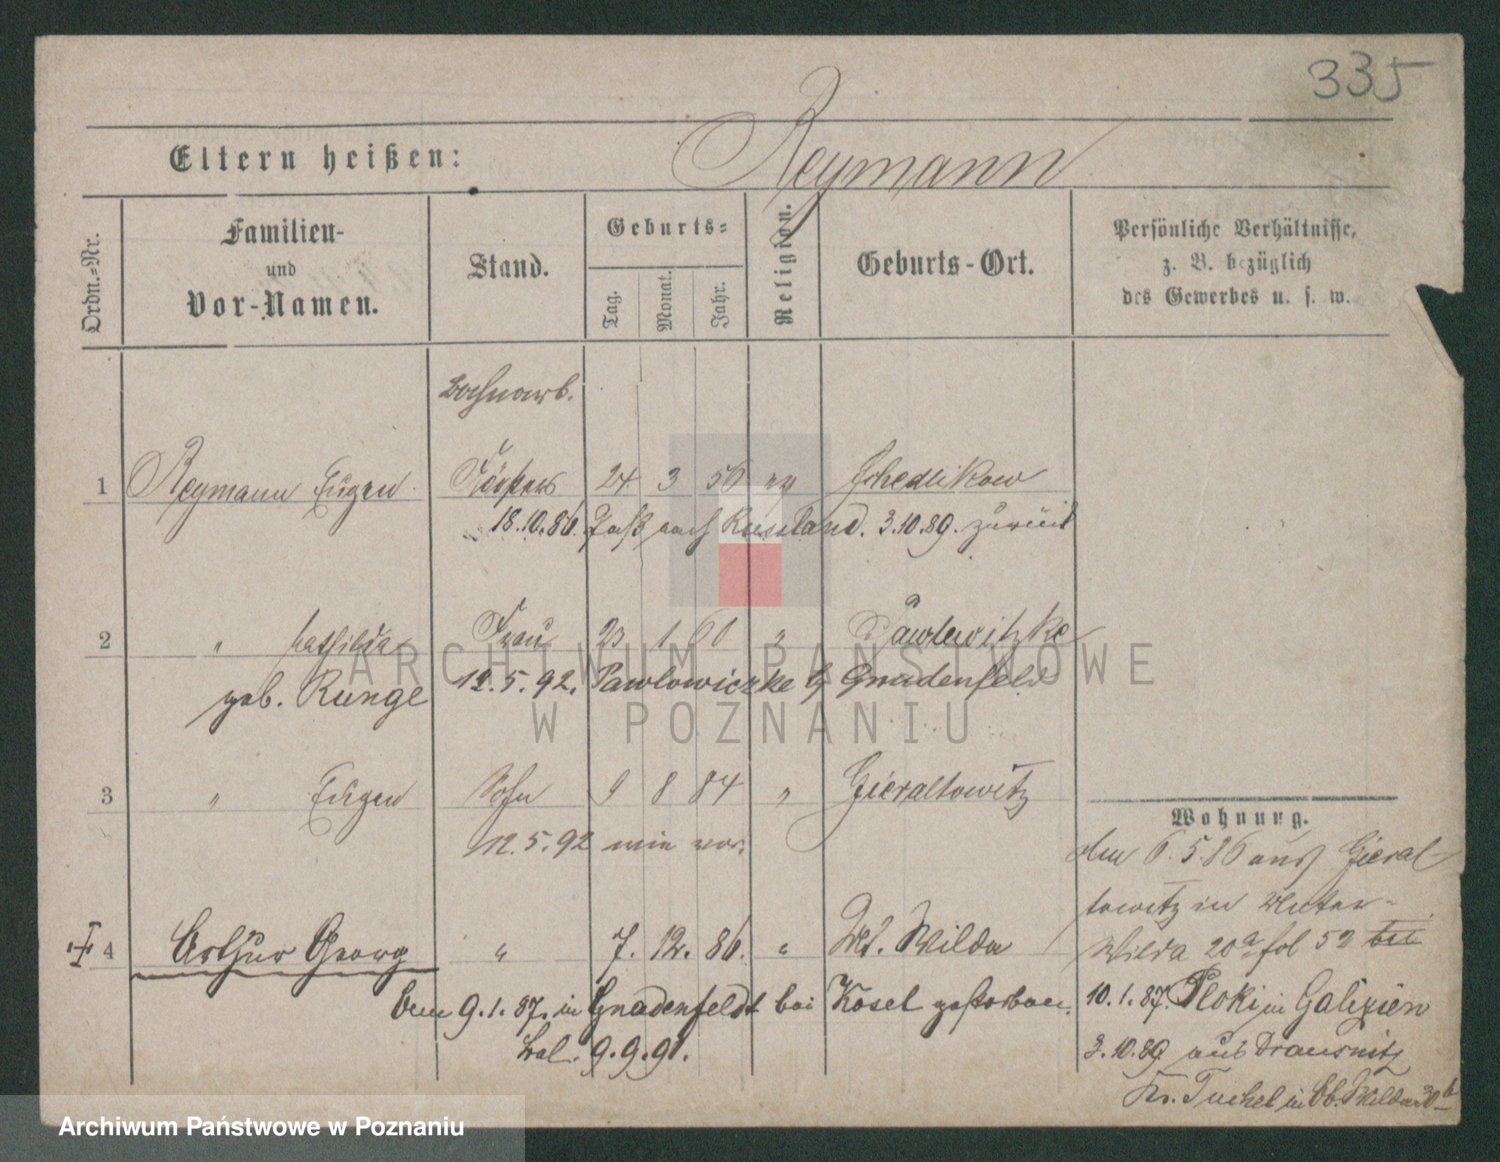 335
Eltern heißen: Reymann
Ordn.-Nr.
Familien-
und
Vor-Namen.
Stand.
Geburts-
Tag.
Monat.
Jahr.
Religion.
Geburts-Ort.
Persönliche Verhältnisse,
z. B. bezüglich
des Gewerbes u. s. w.
1 Reymann Eugen 24 3 56 Schedlikow
18.10.86. Paß nach Russland. 3.10.89. zurück
2 " Mathilda Frau 23 1 60 " Pawlowitzke
geb. Runge 12.5.92. Pawlowiczke b/ Gnadenfeld
3 " Eugen Sohn 9 8 84 " Gieraltowitz
12.5.92 wie vor.
4 Arthur Georg " 7. 12. 86. " Unt. Wilda
9.1.87. in Gnadenfeldt bei Kosel gestorben.
9.9.91.
Wohnung.
den 6.5.86 aus Gieral-
towitz in Unter-
Wilda 20a fol 52
10.1.87. Ploki in Galizien
3.10.89 aus Drausnitz
Kr. Tuchel in Ob. Wilda 30b
ARCHIWUM PAŃSTWOWE
W POZNANIU
Archiwum Państwowe w Poznaniu